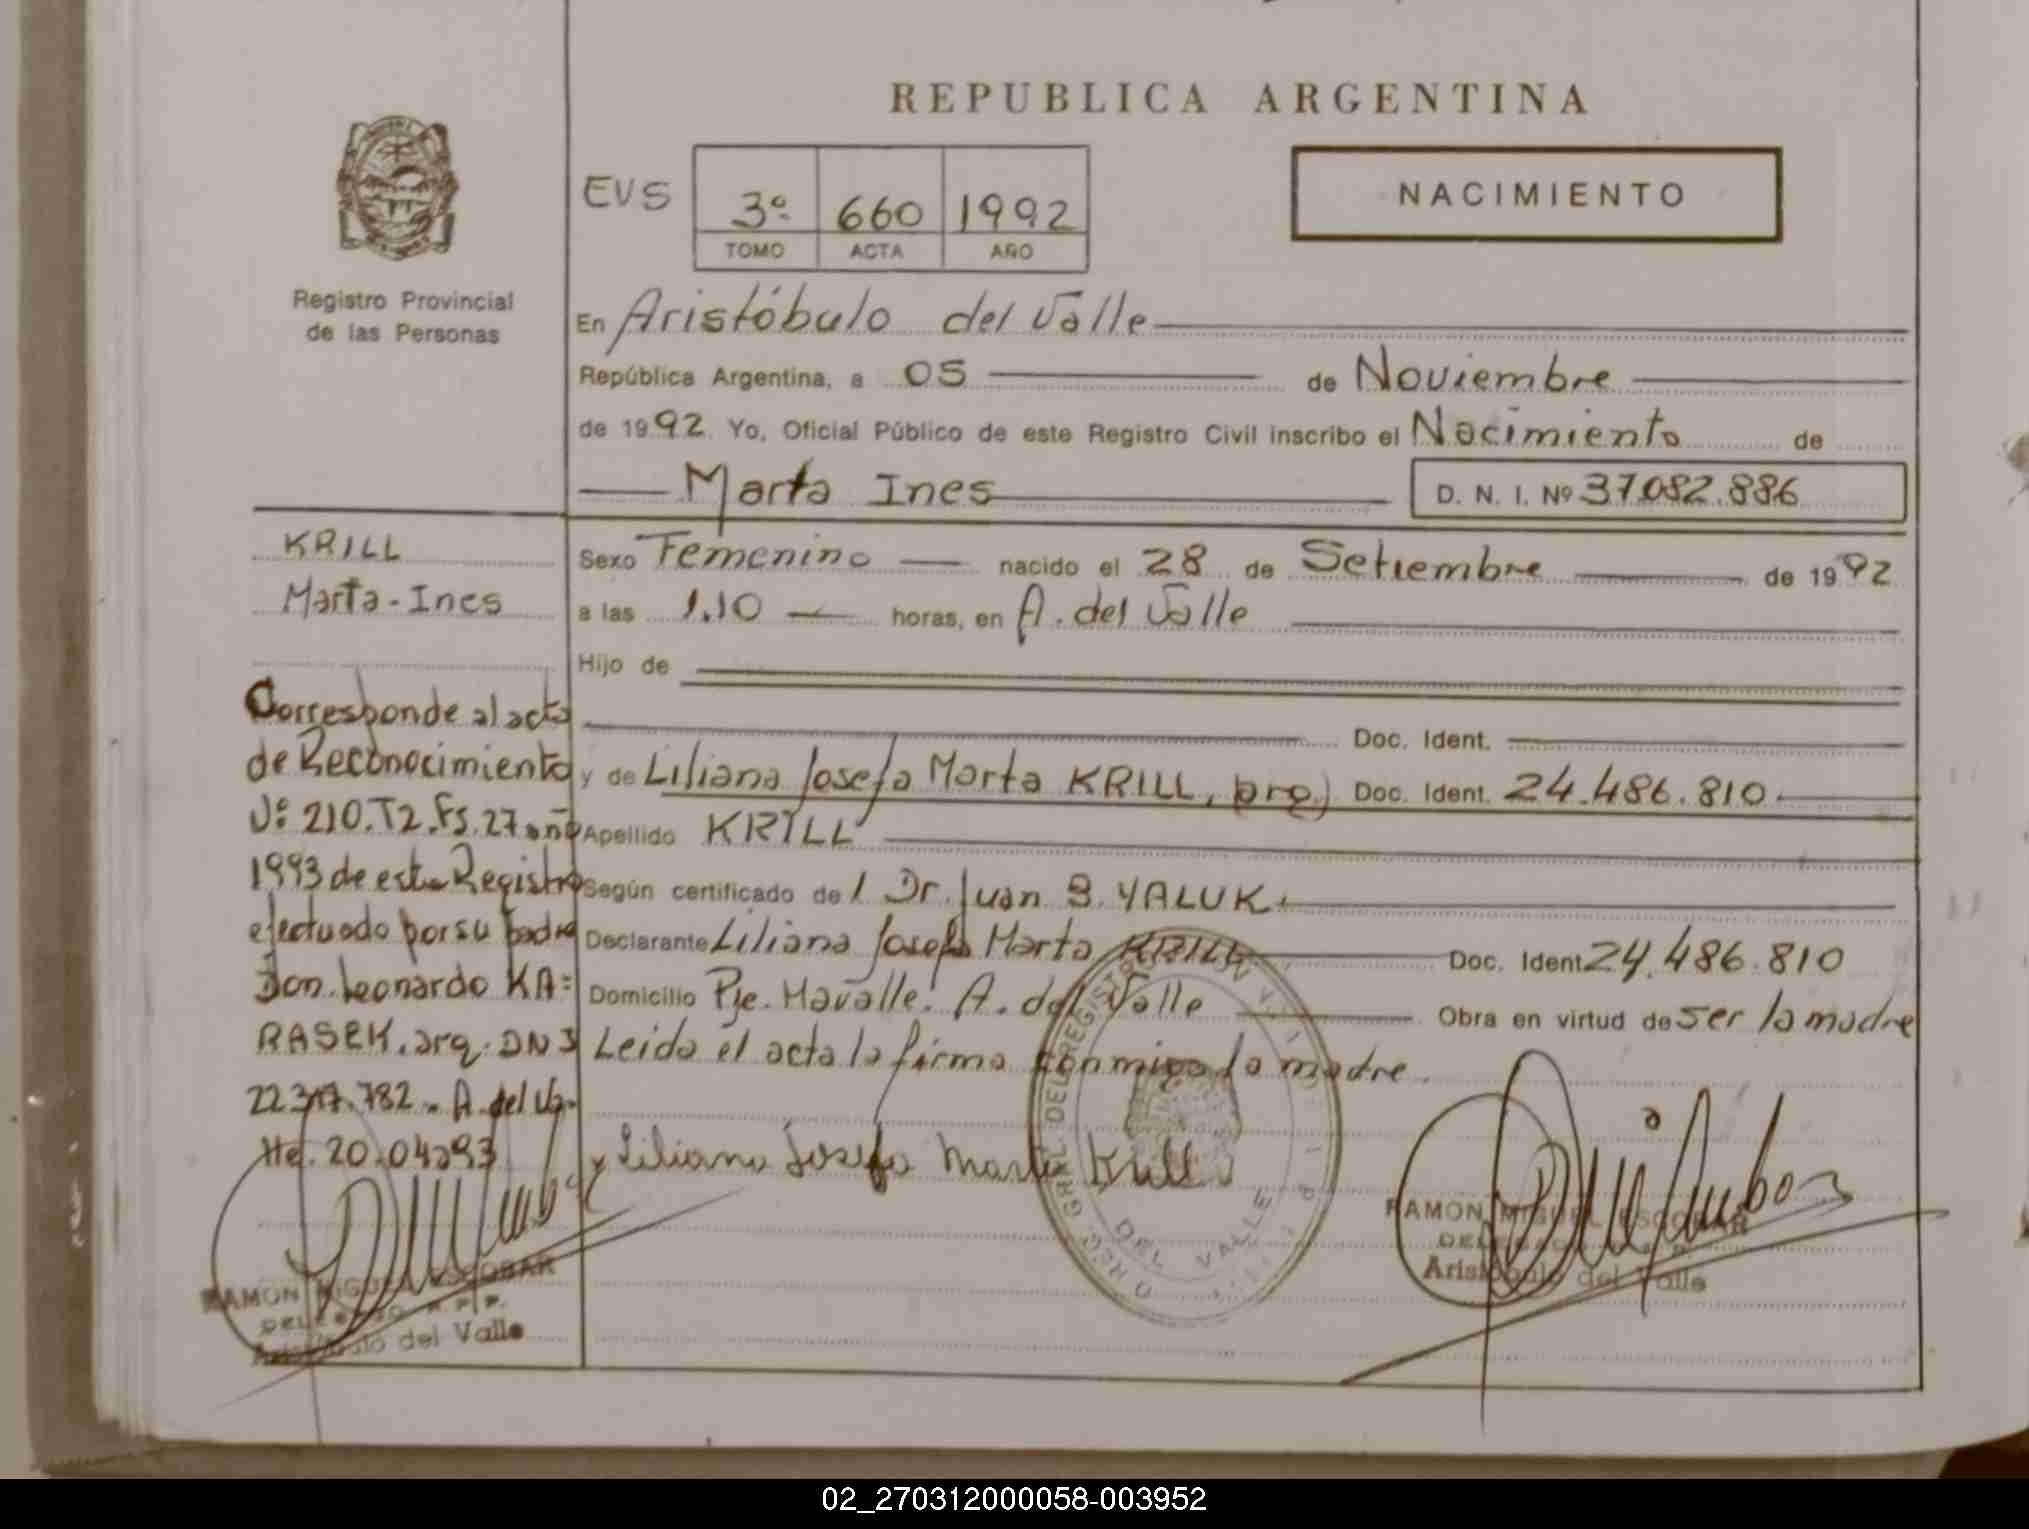 REPUBLICA ARGENTINA
EVS 3º 660 1992
TOMO ACTA AÑO
NACIMIENTO
Registro Provincial
de las Personas
En Aristóbulo del Valle
República Argentina, a 05 de Noviembre
de 1992 Yo, Oficial Público de este Registro Civil inscribo el Nacimiento de
Marta Ines D. N. I. Nº 37.082.886
KRILL
Marta-Ines
Corresponde al acta
de Reconocimiento
Nº 210.T2.Fs.27 año
1993 de este Registro
efectuado por su padre
Don Leonardo KA=
RASEK. arg. DNI
22.317.782. A. del Va-
lle. 20.04.93
RAMON MIGUEL ESCOBAR
DELEGADO R.P.P.
Aristóbulo del Valle
Sexo Femenino nacido el 28 de Setiembre de 1992
a las 1.10 horas, en A. del Valle
Hijo de
Doc. Ident.
y de Liliana Josefa Marta KRILL, (arg.) Doc. Ident. 24.486.810.
Apellido KRILL
Según certificado de l Dr. Juan B. YALUK.
Declarante Liliana Josefa Marta KRILL Doc. Ident 24.486.810
Domicilio Pje. Mavalle. A. del Valle Obra en virtud de ser la madre
Leida el acta la firma conmigo la madre.
Liliana Josefa Marta Krill
GRAL. DEL REGISTRO
DEL VALLE
RAMON MIGUEL ESCOBAR
DELEGADO
Aristóbulo del Valle
02_270312000058-003952